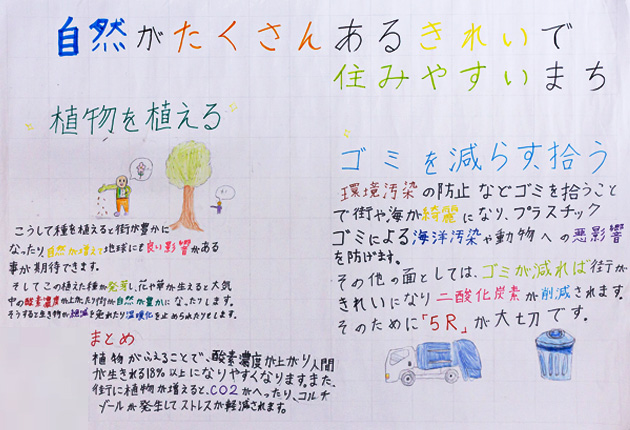 自然がたくさんあるきれいで
住みやすいまち
植物を植える
こうして種を植えると街が豊かに
なったり、自然が増えて地球にも良い影響がある
事が期待できます。
そしてこの植えた種が発芽し、花や草が生えると大気
中の酸素濃度が上がったり街が自然が豊かになったりします。
そうすると生き物が絶滅を免れたり温暖化を止められたりとします。
ゴミを減らす、拾う
環境汚染の防止などゴミを拾うこと
で街や海が綺麗になり、プラスチック
ゴミによる海洋汚染や動物への悪影響
を防げます。
その他の面としては、ゴミが減れば街が
きれいになり二酸化炭素が削減されます。
そのために「5R」が大切です。
まとめ
植物がふえることで、酸素濃度が上がり人間
が生きれる18%以上になりやすくなります。また、
街に植物が増えると、CO2がへったり、コルチ
ゾールが発生してストレスが軽減されます。